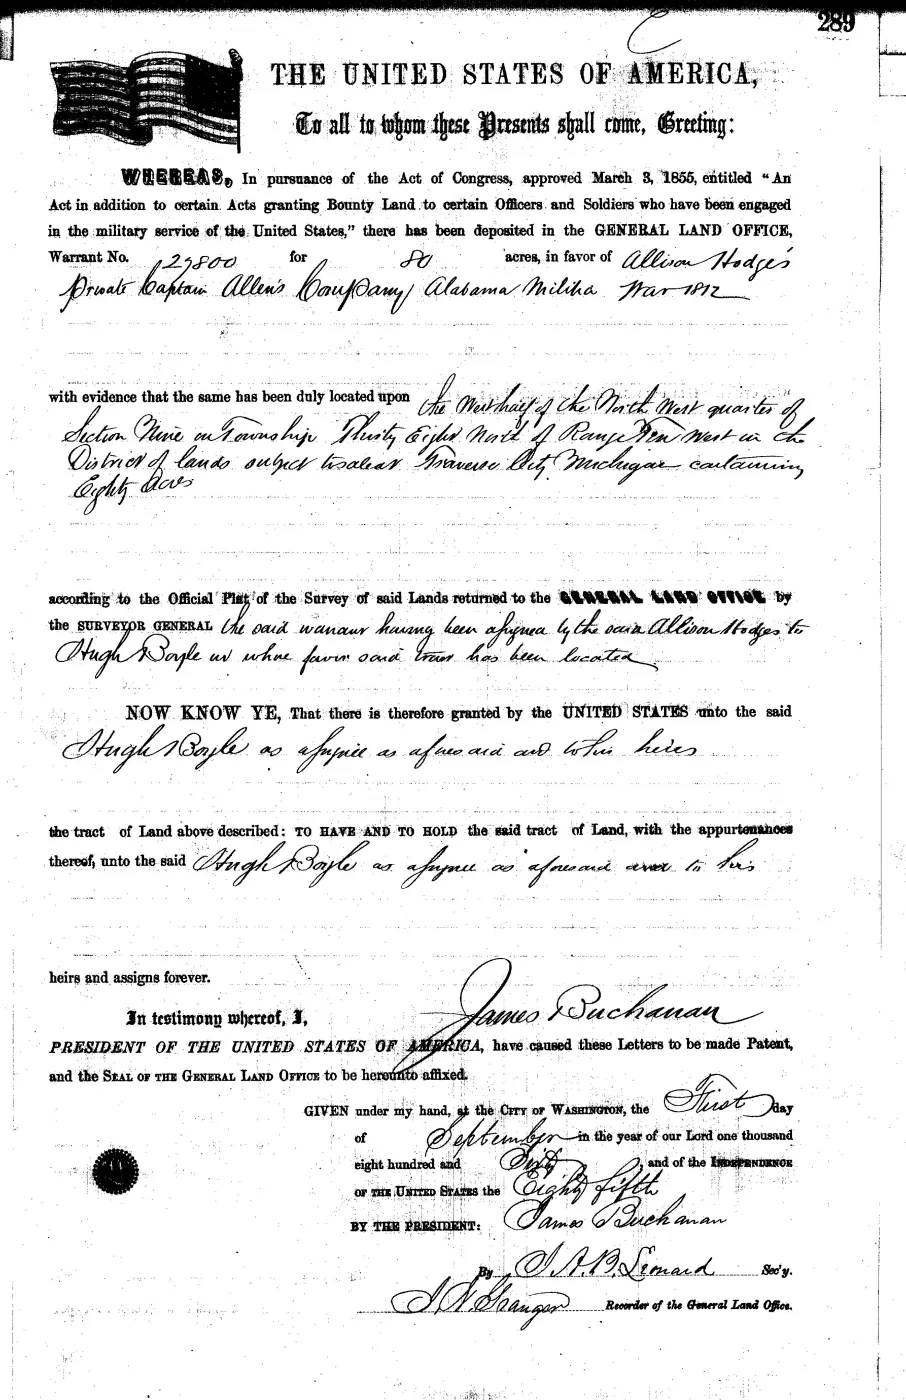 289
THE UNITED STATES OF AMERICA,
To all to whom these Presents shall come, Greeting:
WHEREAS, In pursuance of the Act of Congress, approved March 3, 1855, entitled "An
Act in addition to certain Acts granting Bounty Land to certain Officers and Soldiers who have been engaged
in the military service of the United States," there has been deposited in the GENERAL LAND OFFICE,
Warrant No. 29800 for 80 acres, in favor of Allison Hodges
Private Captain Allen's Company Alabama Militia War 1812
with evidence that the same has been duly located upon the West half of the North West quarter of
Section Nine in Township Thirty Eight North of Range Ten West in the
District of lands subject to sale at Traverse City Michigan containing
Eighty Acres
according to the Official Plat of the Survey of said Lands returned to the GENERAL LAND OFFICE by
the SURVEYOR GENERAL the said warrant having been assigned by the said Allison Hodges to
Hugh Boyle in whose favor said tract has been located
NOW KNOW YE, That there is therefore granted by the UNITED STATES unto the said
Hugh Boyle as assignee as aforesaid and to his heirs
the tract of Land above described: TO HAVE AND TO HOLD the said tract of Land, with the appurtenances
thereof, unto the said Hugh Boyle as assignee as aforesaid and to his
heirs and assigns forever.
In testimony whereof, I, James Buchanan
PRESIDENT OF THE UNITED STATES OF AMERICA, have caused these Letters to be made Patent,
and the SEAL OF THE GENERAL LAND OFFICE to be hereunto affixed.
GIVEN under my hand, at the CITY OF WASHINGTON, the First day
of September in the year of our Lord one thousand
eight hundred and Sixty, and of the INDEPENDENCE
OF THE UNITED STATES the Eighty fifth
BY THE PRESIDENT: James Buchanan
By J. A. B. Leonard Sec'y.
J. N. Granger Recorder of the General Land Office.